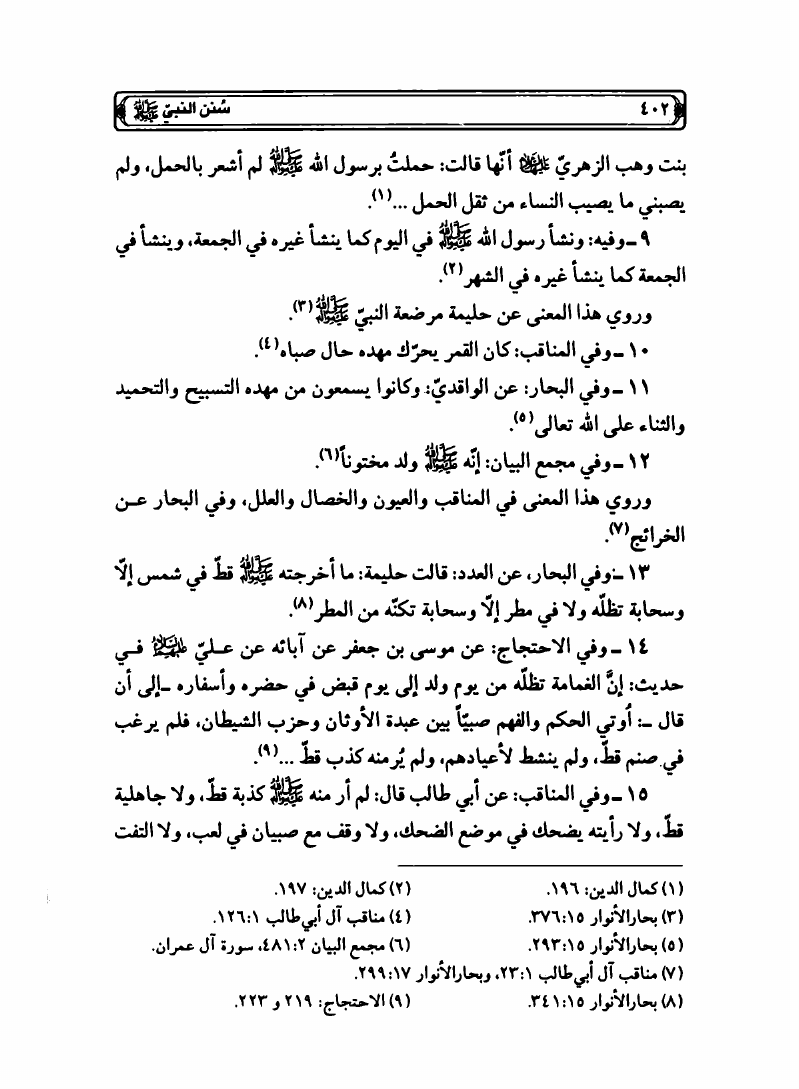 ٤٠٢ سُنن النبيّ ﷺ
بنت وهب الزهريّ عليها السلام أنّها قالت: حملتُ برسول الله ﷺ لم أشعر بالحمل، ولم
يصبني ما يصيب النساء من ثقل الحمل ...(١).
٩ ـ وفيه: ونشأ رسول الله ﷺ في اليوم كما ينشأ غيره في الجمعة، وينشأ في
الجمعة كما ينشأ غيره في الشهر(٢).
وروي هذا المعنى عن حليمة مرضعة النبيّ ﷺ(٣).
١٠ ـ وفي المناقب: كان القمر يحرّك مهده حال صباه(٤).
١١ ـ وفي البحار: عن الواقديّ: وكانوا يسمعون من مهده التسبيح والتحميد
والثناء على الله تعالى(٥).
١٢ ـ وفي مجمع البيان: إنّه ﷺ ولد مختوناً(٦).
وروي هذا المعنى في المناقب والعيون والخصال والعلل، وفي البحار عـن
الخرائج(٧).
١٣ ـ وفي البحار، عن العدد: قالت حليمة: ما أخرجته ﷺ قطّ في شمس إلّا
وسحابة تظلّه ولا في مطر إلّا وسحابة تكنّه من المطر(٨).
١٤ ـ وفي الاحتجاج: عن موسى بن جعفر عن آبائه عن عـليّ عليهم السلام فـي
حديث: إنَّ الغمامة تظلّه من يوم ولد إلى يوم قبض في حضره وأسفاره ـ إلى أن
قال ـ: أُوتي الحكم والفهم صبيّاً بين عبدة الأوثان وحزب الشيطان، فلم يرغب
في صنم قطّ، ولم ينشط لأعيادهم، ولم يُر منه كذب قطّ ...(٩).
١٥ ـ وفي المناقب: عن أبي طالب قال: لم أر منه ﷺ كذبة قطّ، ولا جاهلية
قطّ، ولا رأيته يضحك في موضع الضحك، ولا وقف مع صبيان في لعب، ولا التفت
(١) كمال الدين: ١٩٦. (٢) كمال الدين: ١٩٧.
(٣) بحارالأنوار ١٥: ٣٧٦. (٤) مناقب آل أبي‌طالب ١: ١٢٦.
(٥) بحارالأنوار ١٥: ٢٩٣. (٦) مجمع البيان ٢: ٤٨١، سورة آل عمران.
(٧) مناقب آل أبي‌طالب ١: ٢٣، وبحارالأنوار ١٧: ٢٩٩.
(٨) بحارالأنوار ١٥: ٣٤١. (٩) الاحتجاج: ٢١٩ و ٢٢٣.